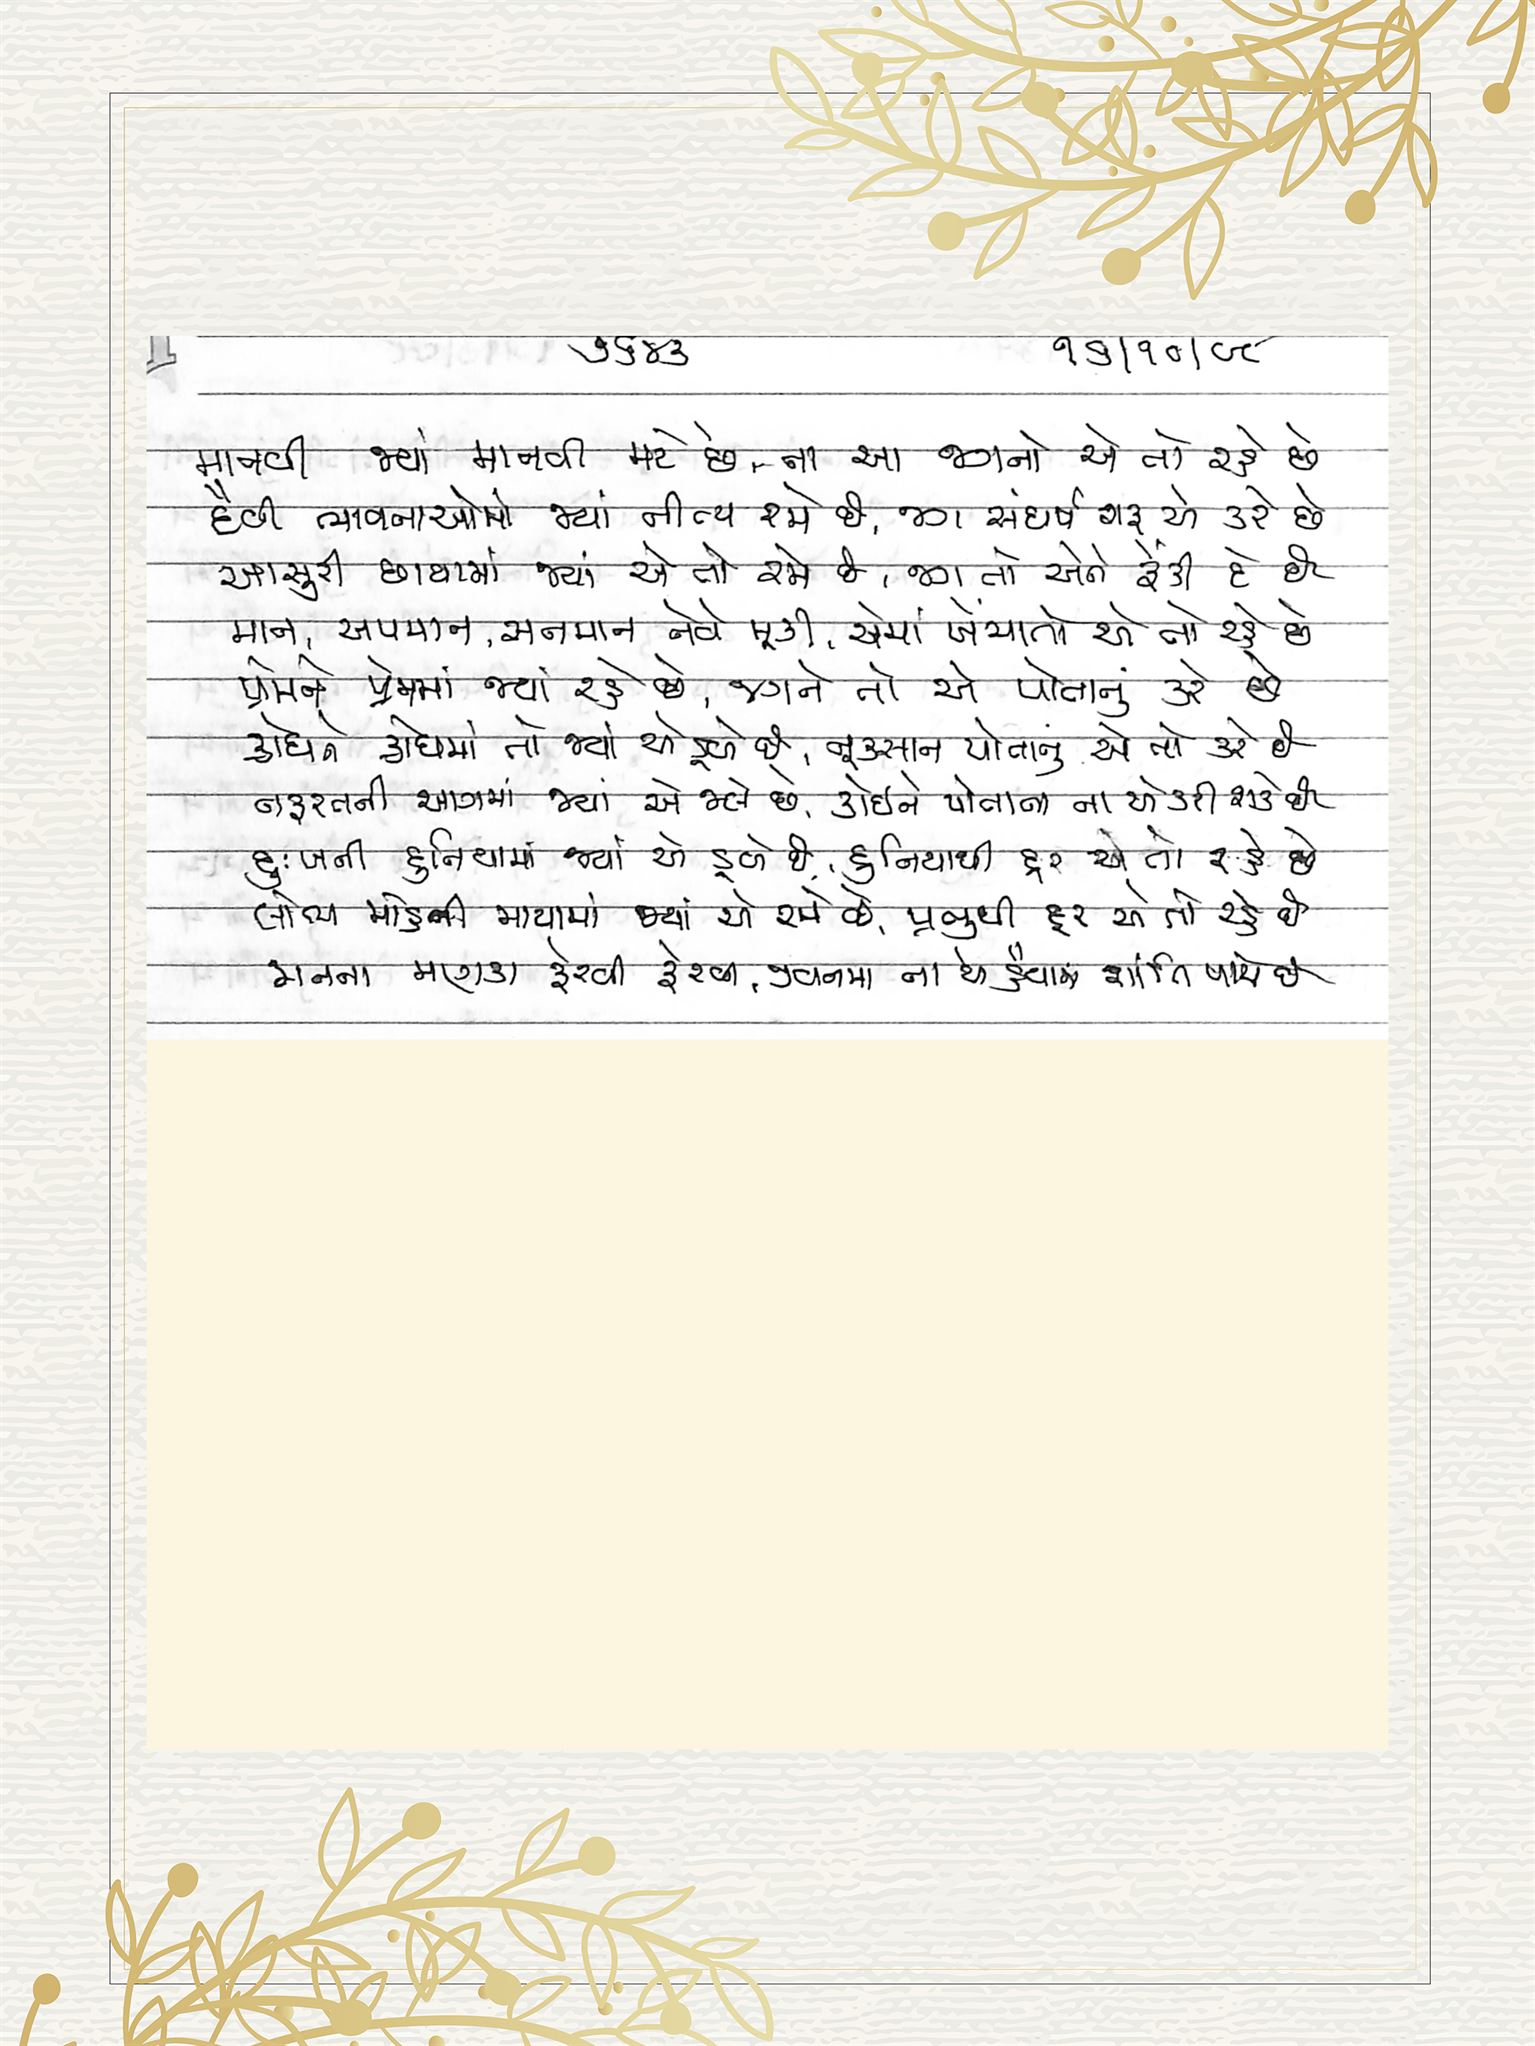 ૭૬૪૩ ૧૬/૧૦/૯૮
માનવી જ્યાં માનવી મટે છે, ના આ જગનો એ તો રહે છે
દૈવી ભાવનાઓમાં જ્યાં નીત્ય રમે છે, જગ સંઘર્ષ શરૂ એ કરે છે
આસુરી છાયામાં જ્યાં એ તો રમે છે, જગ તો એને ફેંકી દે છે
માન, અપમાન, સનમાન નેવે મૂકી, એમાં ખેંચાતો એ તો રહે છે
પ્રેમને પ્રેમમાં જ્યાં રહે છે, જગને તો એ પોતાનું કરે છે
ક્રોધને ક્રોધમાં તો જ્યાં એ ડૂબે છે, નૂકસાન પોતાનું એ તો કરે છે
નફરતની આગમાં જ્યાં એ જલે છે, કોઈને પોતાના ના એ કરી શકે છે
દુઃખની દુનિયામાં જ્યાં એ ડૂબે છે, દુનિયાથી દૂર એ તો રહે છે
લોભ મોહની માયામાં જ્યાં એ રમે છે, પ્રભુથી દૂર એ તો રહે છે
મનના મણકા ફેરવી ફેરવી, જીવનમાં ના એ શાંતિ પામે છે